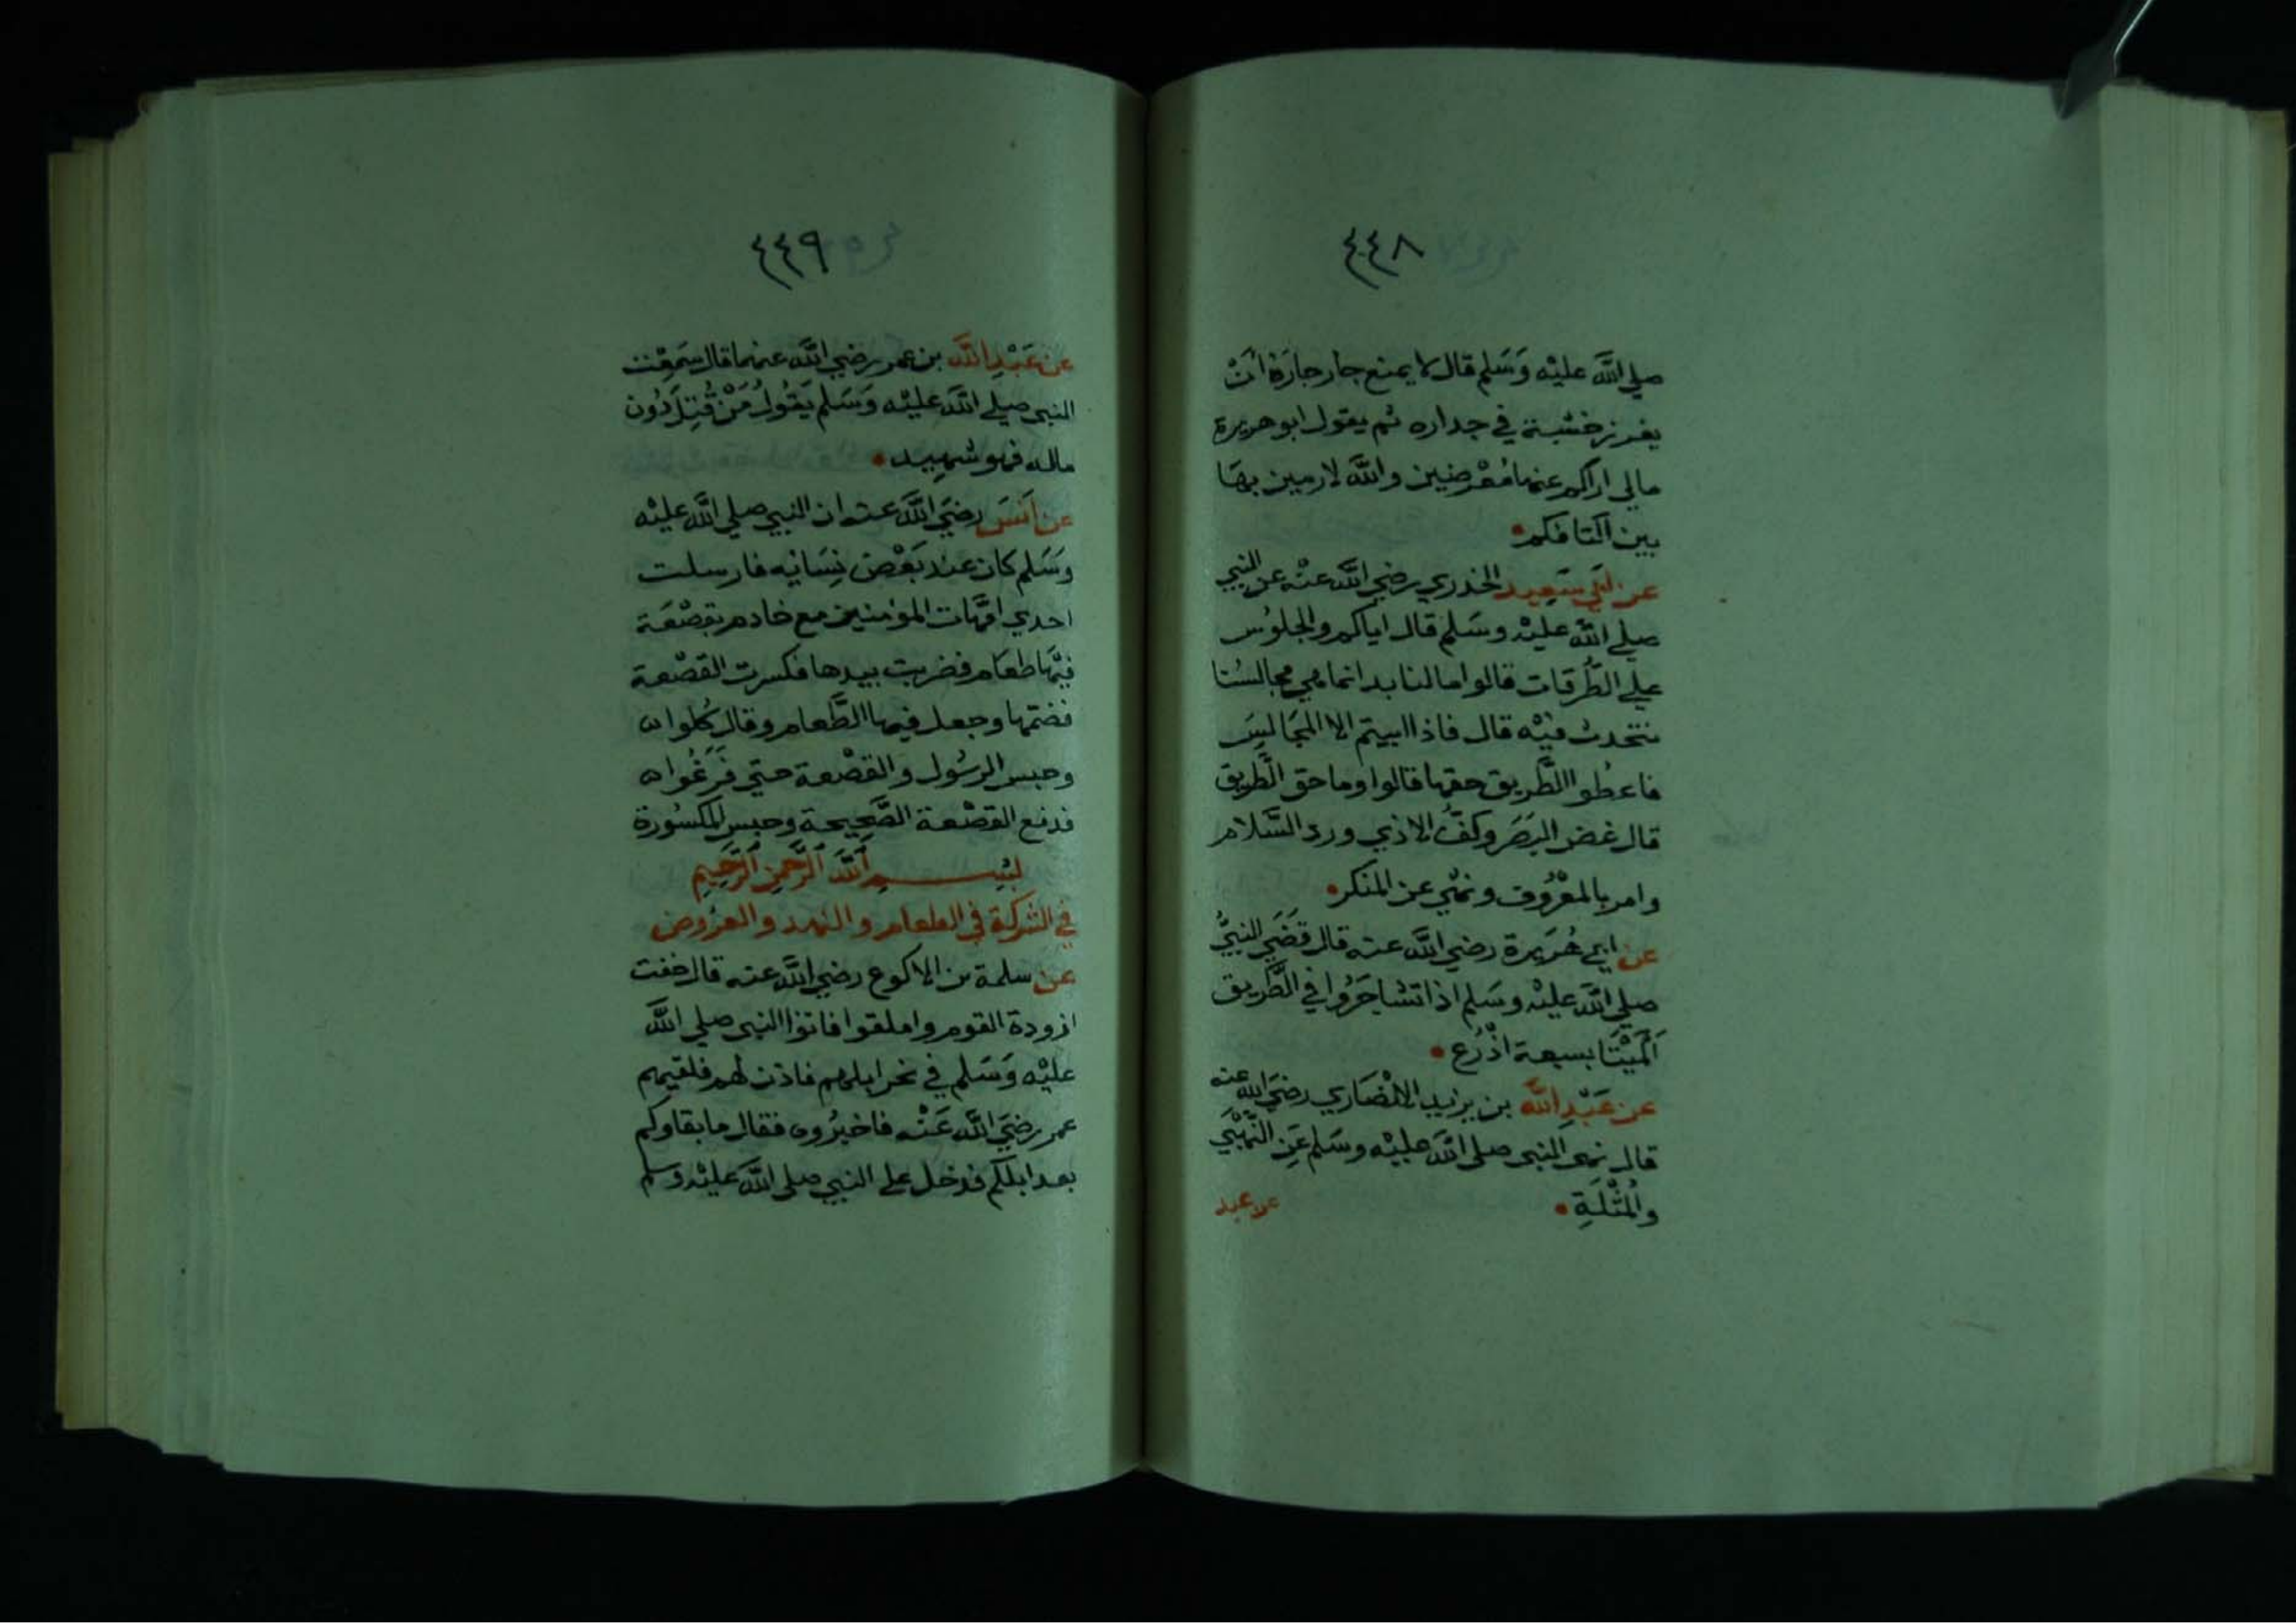 ٤٤٨
صلي الله عليه وَسَلم قال لا يمنع جار جارَهُ أنْ
يغرز خشبة في جداره ثم يقول ابو هريرة
مالي اراكم عنها مُعْرضين والله لارمين بهَا
بين اكتافكم
عن ابي سَعِيد الخدري رضي الله عنْه عن النبي
صلي الله عليْه وسَلم قال اياكم والجلوُس
علي الطُرقات قالوا مالنا بد انما هي مجالسُنا
نتحدث فيْه قال فاذا ابيتم الا المجَالِسَ
فاعطُوا الطَّريق حقها قالوا وما حق الطَّريق
قال غض البَصَر وكفُّ الاذي ورد السَّلام
وامر بالمعْرُوف ونهْي عن المنكر
عن ابي هُرَيرة رضي الله عنه قال قضَي النبيُّ
صلي الله عليْه وسَلم اذا تشاجَرُوا في الطَّريق
المَيْتَا بسبعة اذْرُع
عن عَبْدِ الله بن يزيد الانْصَاري رضيَ الله عنه
قال نهى النبي صلى الله عليْه وسَلم عَنِ النُّهْبَي
والمُثْلَةِ
عن عبد
٤٤٩
عن عَبْدِ الله بن عمر رضي الله عنهما قال سَمِعْت
النبي صلي الله عليْه وَسَلم يَقُولُ مَنْ قُتِلَ دُون
ماله فهو شهِيد
عن اَنسَ رضيَ الله عنه ان النبي صلي الله عليْه
وسَلم كان عنْد بَعْض نِسَائِه فارسلت
احدي امَّهات المؤمنين مع خادم بقصْعَة
فيْهَا طعَام فضربت بيدها فكسرت القصْعة
فضمّها وجعل فيها الطَّعام وقال كُلوا
وحبس الرسُول والقصْعة حتي فرَغُوا
فدفع القصْعة الصَّحِيحة وحبس المكسُورة
بسْم اللهِ الرَّحمنِ الرَّحِيم
في الشركة في الطعام والنهد والعرُوض
عن سلمة بن الاكوع رضي الله عنه قال خفت
ازودة القوم واملقوا فاتوا النبي صلي الله
عليْه وَسَلم في نحر ابلهم فاذن لهم فلقيهم
عمر رضيَ الله عَنْه فاخبرُوه فقال ما بقاوكم
بعد ابلكم فدخل على النبي صلى الله عليْه وسلم